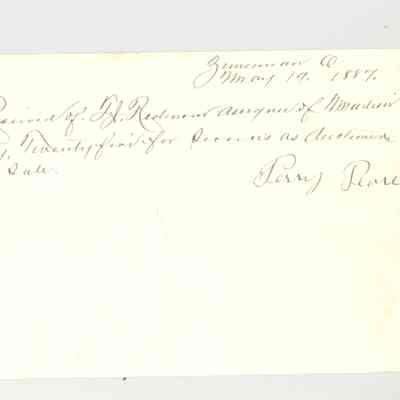 Zimmerman O
May 19. 1887.
Received of T.J. Redmon assignee of
Twenty five for services as Auctioneer
Sale.
Perry